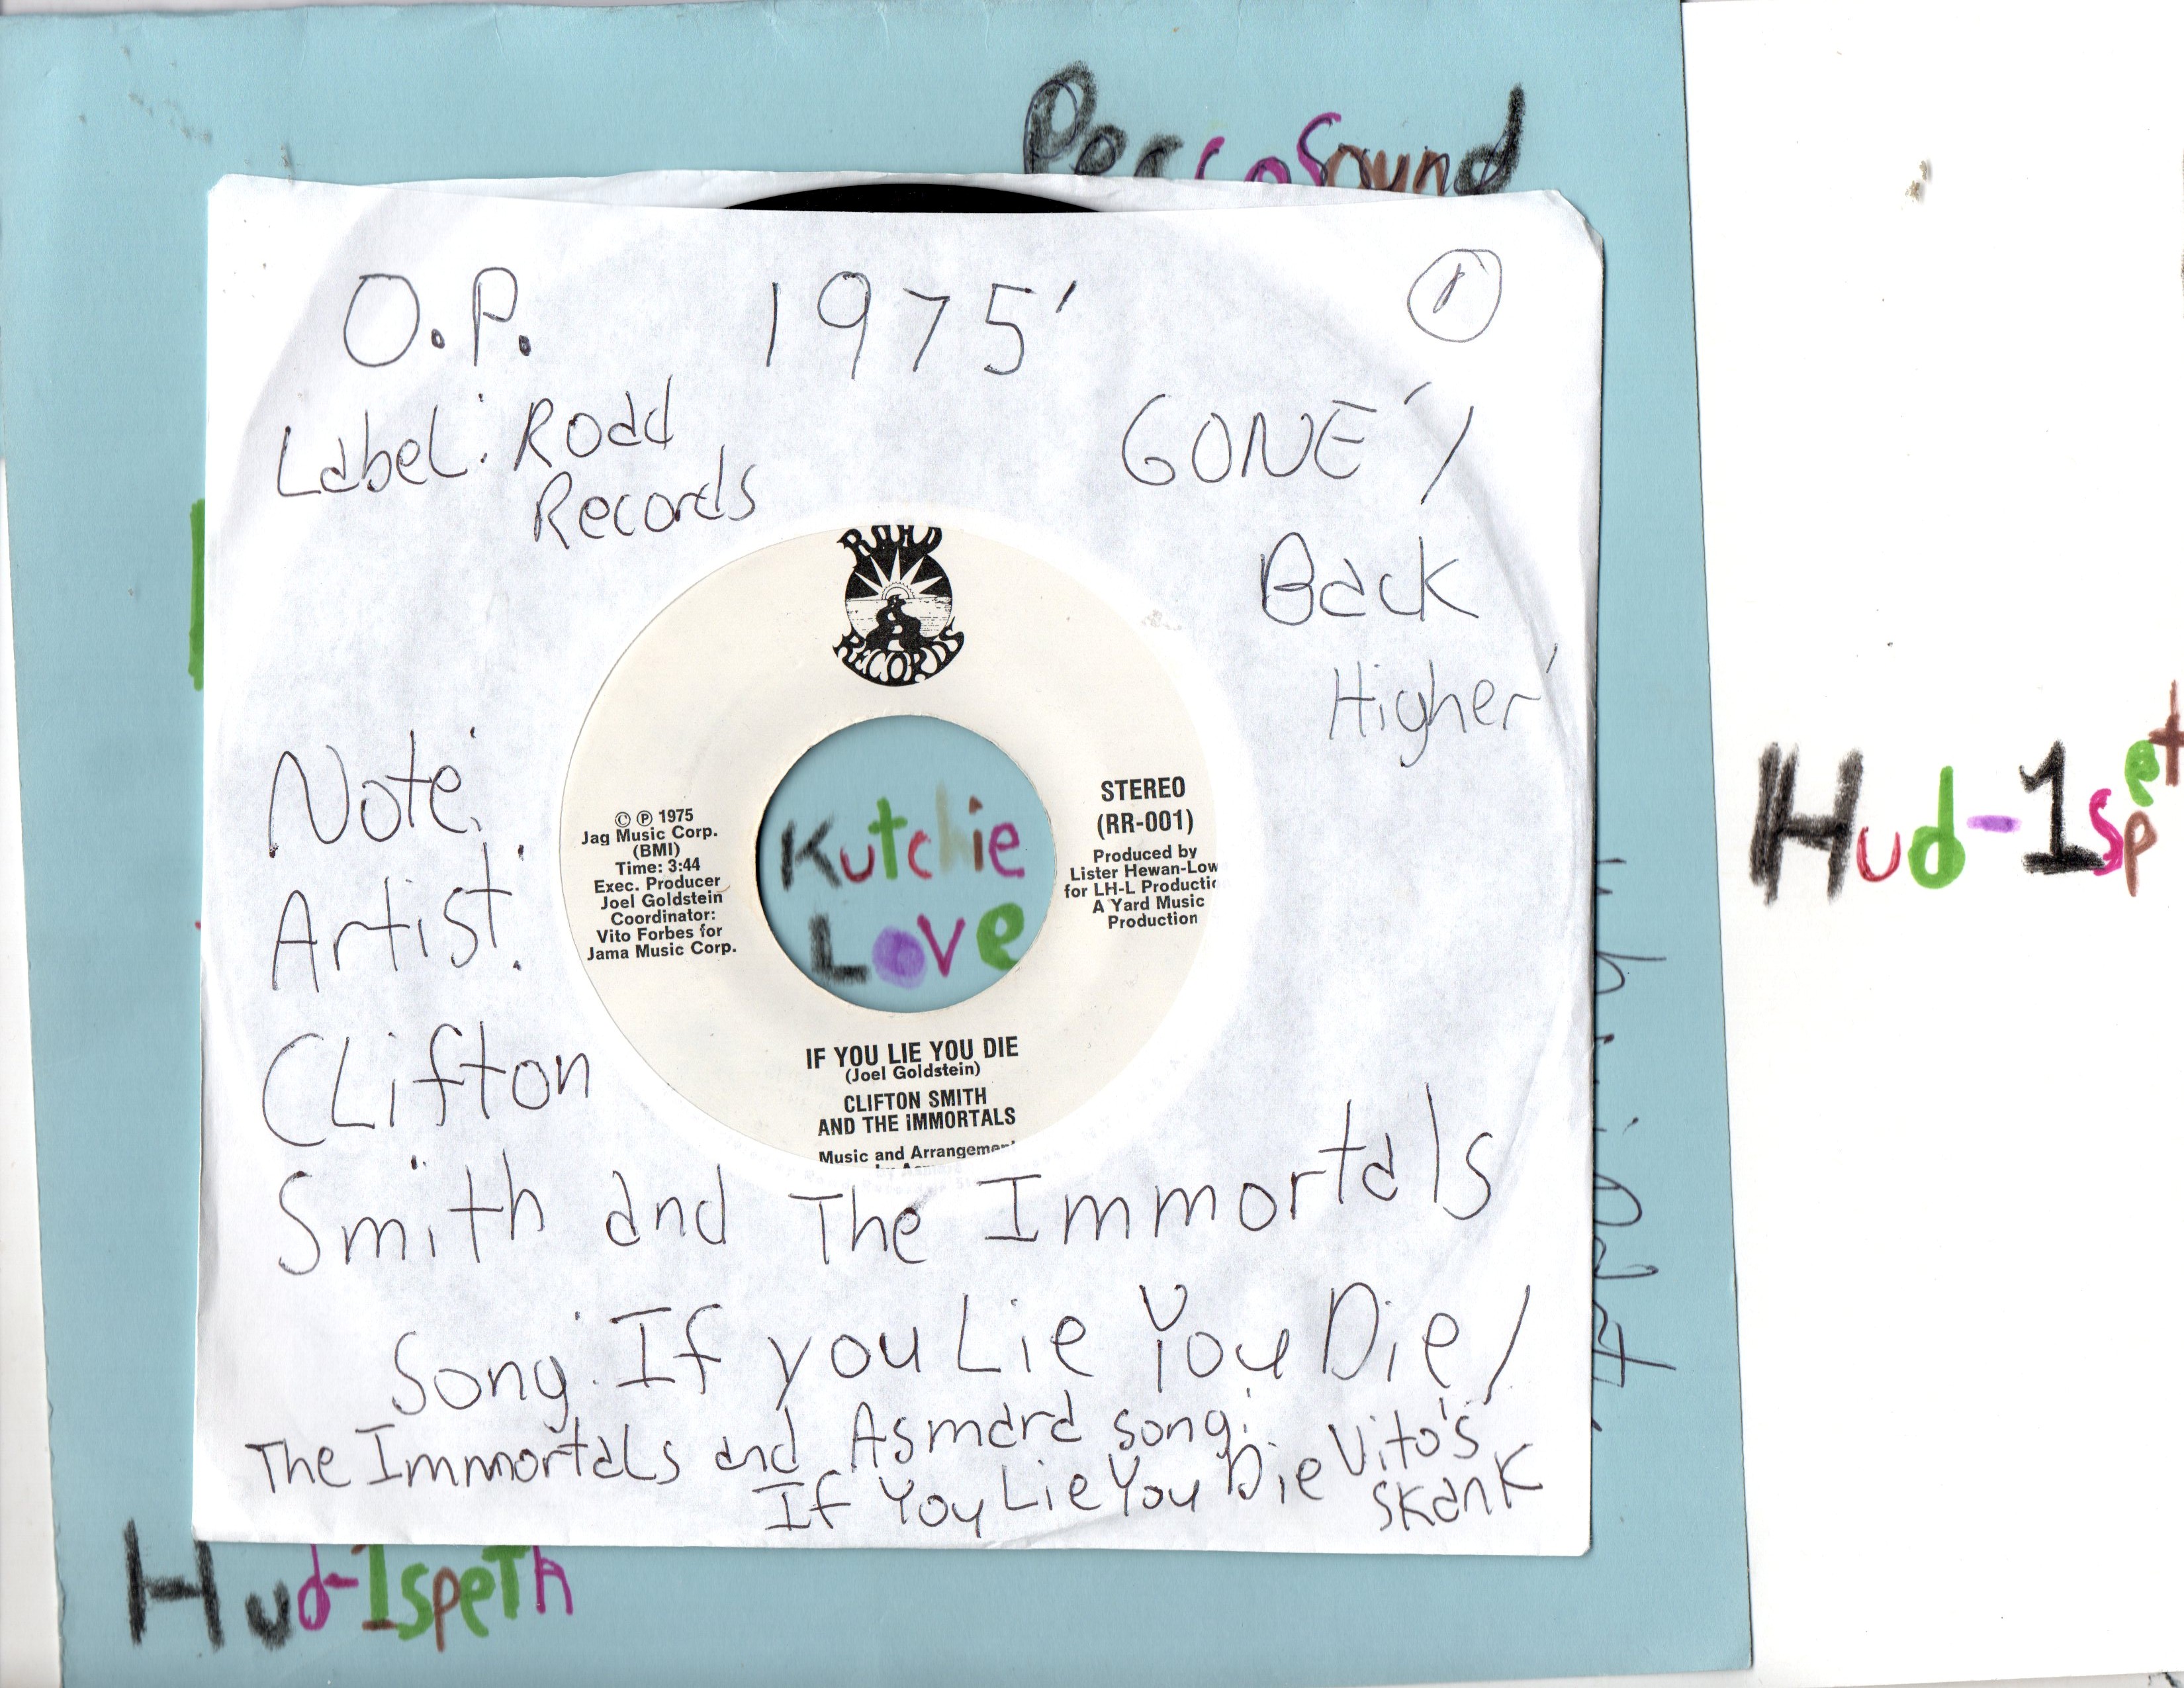 PeccoSound
O.P. 1975'
1
Label: Road
Records
GONE'/
Back
Higher'
ROAD
RECORDS
Note:
Artist:
Clifton
Smith and The Immortals
© ℗ 1975
Jag Music Corp.
(BMI)
Time: 3:44
Exec. Producer
Joel Goldstein
Coordinator:
Vito Forbes for
Jama Music Corp.
Kutchie
Love
STEREO
(RR-001)
Produced by
Lister Hewan-Low
for LH-L Productio
A Yard Music
Production
IF YOU LIE YOU DIE
(Joel Goldstein)
CLIFTON SMITH
AND THE IMMORTALS
Music and Arrangemen
Song: If you Lie You Die/
The Immortals and Asmara song:
If You Lie You Die Vito's
Skank
Hud-1speth
Hud-1spet